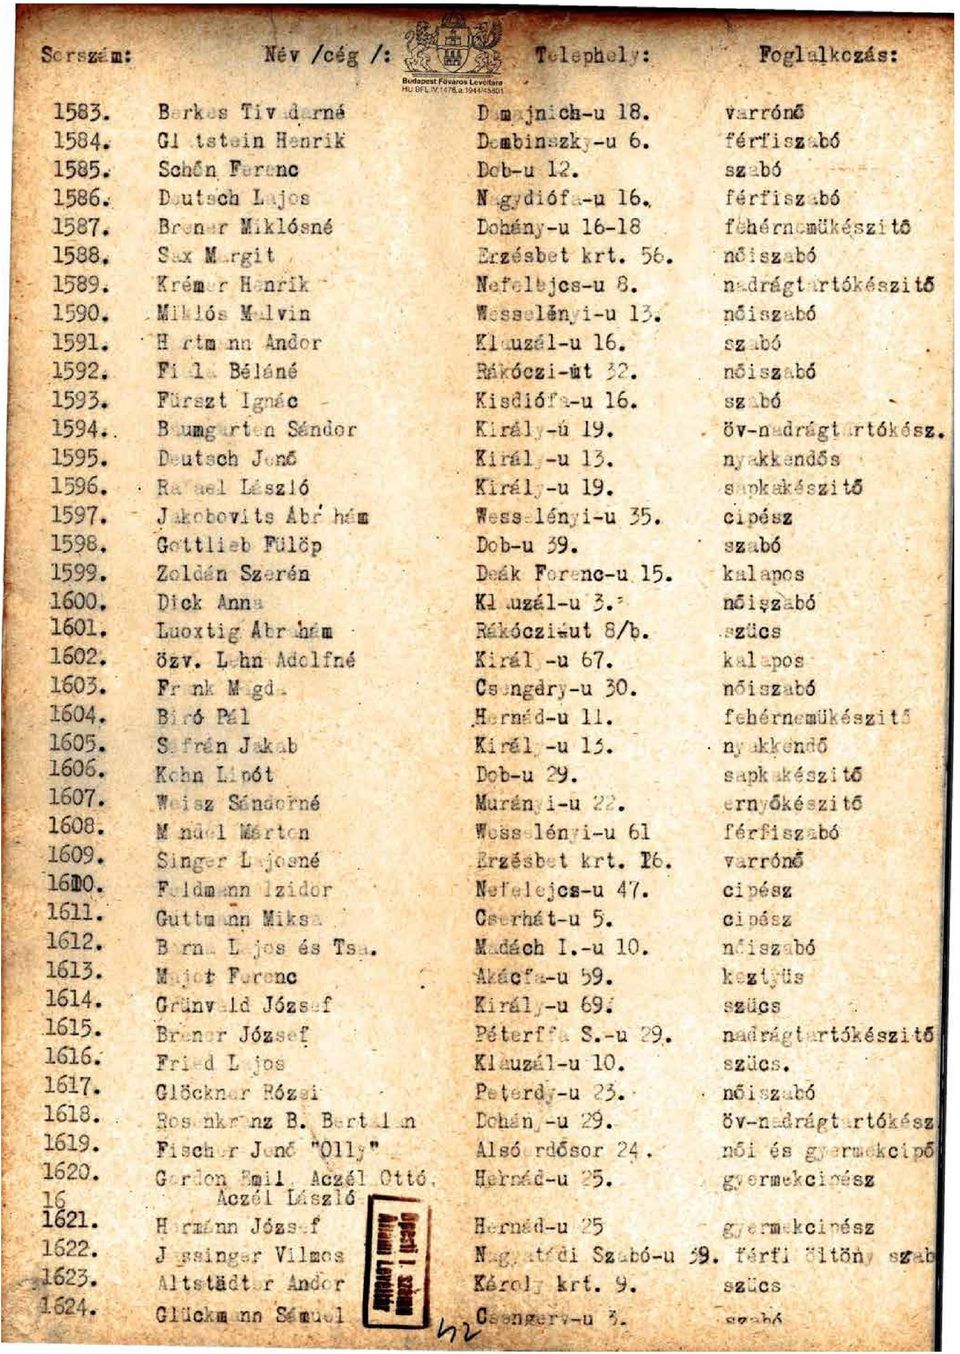 Sorszám: Név /cég /: Telephely: Foglalkozás:
Budapest Főváros Levéltára
HU BFL IV.1476.a 1944/45801
1583. Berkes Tivadarné Damjanich-u 18. varrónő
1584. Glatstein Henrik Dembinszky-u 6. férfiszabó
1585. Schőn Ferenc Dob-u 12. szabó
1586. Deutsch Lajos Nagydiófa-u 16. férfiszabó
1587. Brener Miklósné Dohány-u 16-18 fehérnemükészitő
1588. Sax Margit Erzésbet krt. 56. nőiszabó
1589. Krémer Henrik Nefelejcs-u 8. nadrágtartókészitő
1590. Miklós Malvin Wesselényi-u 13. nőiszabó
1591. Hartmann Andor Klauzál-u 16. szabó
1592. Béláné Rákóczi-út 32. nőiszabó
1593. Fürszt Ignác Kisdiófa-u 16. szabó
1594. Baumgarten Sándor Király-u 19. öv-nadrágtartókész.
1595. Deutsch Jenő Király-u 13. nyakkendős
1596. Rafael László Király-u 19. sapkakészitő
1597. Jakobovits Ábrahám Wesselényi-u 35. cipész
1598. Gottlieb Fülöp Dob-u 39. szabó
1599. Zoldán Szerén Deák Ferenc-u 15. kalapos
1600. Dick Anna Klauzál-u 3. nőiszabó
1601. Luoxtig Abrahám Rákóczi-ut 8/b. szücs
1602. özv. Lehn Adolfné Király-u 67. kalapos
1603. Frank Magda Csengery-u 30. nőiszabó
1604. Biró Pál Hernád-u 11. fehérnemükészitő
1605. Safrán Jakab Király-u 13. nyakkendő
1606. Kohn Lipót Dob-u 29. sapkakészitő
1607. Weisz Sándorné Murányi-u 22. ernyőkészitő
1608. Mandel Márton Wesselényi-u 61 férfiszabó
1609. Singer Lajosné Erzésbet krt. 16. varrónő
1610. Feldmann Izidor Nefelejcs-u 47. cipész
1611. Guttmann Miksa Cserhát-u 5. cipész
1612. Lajos és Tsa. Madách I.-u 10. nőiszabó
1613. Ferenc Akácfa-u 59. keztyüs
1614. Grünvald József Király-u 69. szücs
1615. Brener József Péterffy S.-u 29. nadrágtartókészitő
1616. Fried Lajos Klauzál-u 10. szücs.
1617. Glöckner Rózsi Peterdy-u 23. nőiszabó
1618. Rosenkranz B. Bertalan Dohány-u 29. öv-nadrágtartókész
1619. Fischer Jenő "Olly" Alsó erdősor 24. női és gyermekcipő
1620. Gordon Emil Aczél Ottó, Hernád-u 25. gyermekcipész
16 Aczél László
1621. Hermánn József Hernád-u 25 gyermekcipész
1622. Jessinger Vilmos Nagyatádi Szabó-u 39. férfi öltöny szab
1623. Altstädter Andor Károly krt. 9. szücs
1624. Glückmann Sámuel Csengery-u 3. szabó
Állami Levéltár
42